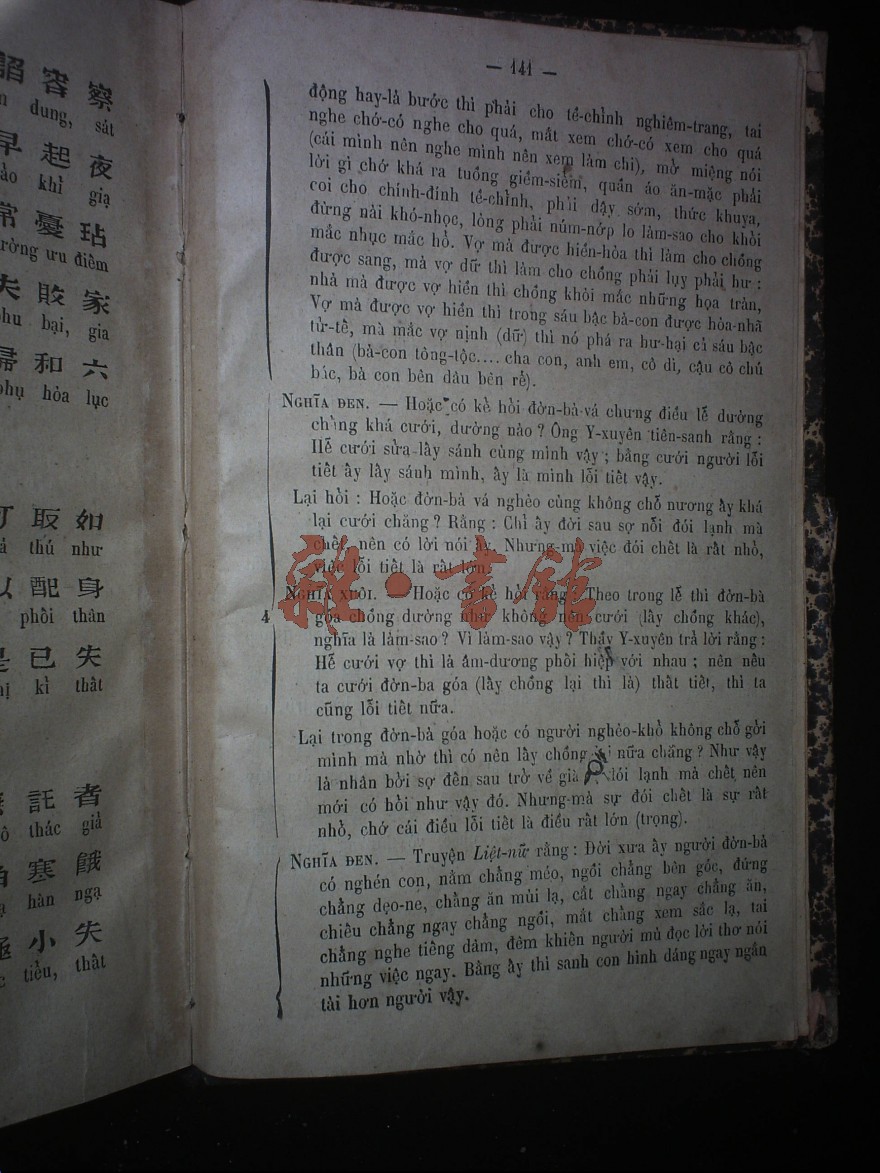 諂 容 察
dung, sát
早 起 夜
khỉ giạ
常 憂 玷
ường ưu điêm
失 敗 家
bại, gia
婦 和 六
phụ hòa lục
可 取 如
thú như
以 配 身
phối thân
是 已 失
kỉ thất
託 者
thác giả
寒 餓
hàn ngạ
極 小 失
tiểu, thất
— 141 —
động hay-là bước thì phải cho tề-chỉnh nghiêm-trang, tai
nghe chớ-có nghe cho quá, mắt xem chớ-có xem cho quá
(cái mình nên nghe mình nên xem làm chi), mở miệng nói
lời gì chớ khá ra tuồng giểm-siểm, quần áo ăn-mặc phải
coi cho chính-đính tề-chỉnh, phải dậy sớm, thức khuya,
đừng nài khó-nhọc, lòng phải núm-nớp lo làm-sao cho khỏi
mắc nhục mắc hổ. Vợ mà được hiền-hòa thì làm cho chồng
được sang, mà vợ dữ thì làm cho chồng phải lụy phải hư :
nhà mà được vợ hiền thì chồng khỏi mắc những họa tràn,
Vợ mà được vợ hiền thì trong sáu bậc bà-con được hòa-nhã
tử-tề, mà mắc vợ nịnh (dữ) thì nó phá ra hư-hại cả sáu bậc
thân (bà-con tông-tộc.... cha con, anh em, cô dì, cậu cô chú
bác, bà con bên dâu bên rể).
NGHĨA ĐEN. — Hoặc có kẻ hỏi đờn-bà vá chưng điều lễ dường
chẳng khá cưới, dường nào ? Ông Y-xuyên tiên-sanh rằng :
Hễ cưới sửa-lấy sánh cùng mình vậy ; bằng cưới người lỗi
tiết ấy lấy sánh mình, ấy là mình lỗi tiết vậy.
Lại hỏi : Hoặc đờn-bà vá nghèo cùng không chỗ nương ấy khá
lại cưới chăng ? Rằng : Chỉ ấy đời sau sợ nỗi đói lạnh mà
chết, nên có lời nói ấy. Nhưng-mà việc đói chết là rất nhỏ,
việc lỗi tiết là rất lớn.
雜·書館
4
NGHĨA XUÔI. — Hoặc có kẻ hỏi rằng : Theo trong lễ thì đờn-bà
góa chồng dường như không nên cưới (lấy chồng khác),
nghĩa là làm-sao ? Vì làm-sao vậy ? Thầy Y-xuyên trả lời rằng :
Hễ cưới vợ thì là âm-dương phối hiệp với nhau ; nên nếu
ta cưới đờn-ba góa (lấy chồng lại thì là) thất tiết, thì ta
cũng lỗi tiết nữa.
Lại trong đờn-bà góa hoặc có người nghèo-khổ không chỗ gởi
mình mà nhờ thì có nên lấy chồng nữa chăng ? Như vậy
là nhân bởi sợ đến sau trở về già đói lạnh mà chết, nên
mới có hỏi như vậy đó. Nhưng-mà sự đói chết là sự rất
nhỏ, chớ cái điều lỗi tiết là điều rất lớn (trọng).
NGHĨA ĐEN. — Truyện Liệt-nữ rằng : Đời xưa ấy người đờn-bà
có nghén con, nằm chẳng méo, ngồi chẳng bên góc, đứng
chẳng dẹo-ne, chẳng ăn mùi lạ, cắt chẳng ngay chẳng ăn,
chiếu chẳng ngay chẳng ngồi, mắt chẳng xem sắc lạ, tai
chẳng nghe tiếng dâm, đêm khiến người mù đọc lời thơ nói
những việc ngay. Bằng ấy thì sanh con hình dáng ngay ngắn
tài hơn người vậy.